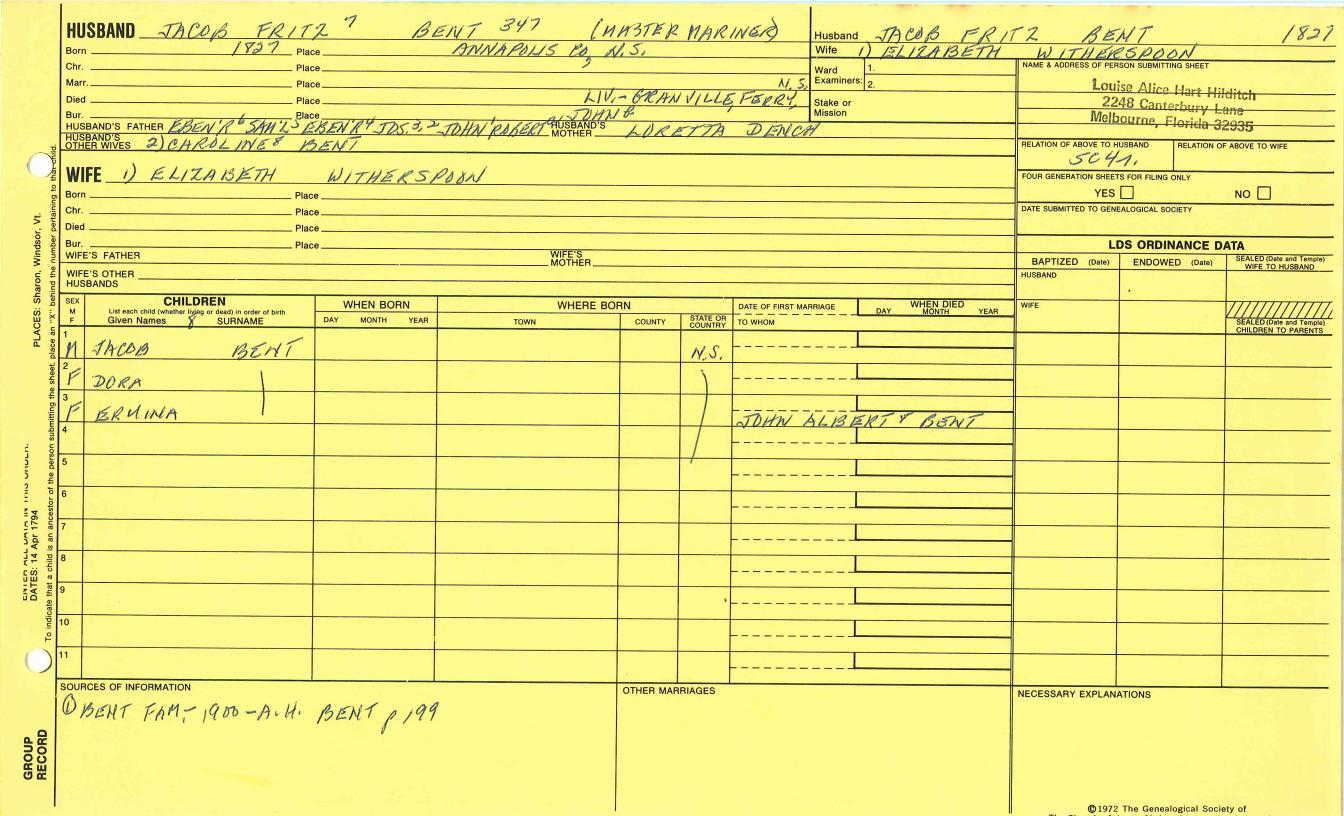 HUSBAND JACOB FRITZ 7 BENT 347 (MASTER MARINER)
Born 1827 Place ANNAPOLIS CO, N.S.
Chr. Place
Marr. Place N.S.
Died Place LIV.- GRANVILLE FERRY,
Bur. Place
HUSBAND'S FATHER EBEN'R 6 SAM'L 5 EBEN'R 4 JOS. 3, 2 JOHN 1 ROBERT a, JOHN b HUSBAND'S MOTHER LORETTA DENCH
HUSBAND'S OTHER WIVES 2) CAROLINE 8 BENT
WIFE 1) ELIZABETH WITHERSPOON
Born Place
Chr. Place
Died Place
Bur. Place
WIFE'S FATHER WIFE'S MOTHER
WIFE'S OTHER HUSBANDS
Husband JACOB FRITZ BENT 1827
Wife 1) ELIZABETH WITHERSPOON
Ward Examiners: 1.
2.
Stake or Mission
NAME & ADDRESS OF PERSON SUBMITTING SHEET
Louise Alice Hart Hilditch
2248 Canterbury Lane
Melbourne, Florida 32935
RELATION OF ABOVE TO HUSBAND RELATION OF ABOVE TO WIFE
5C4r.
FOUR GENERATION SHEETS FOR FILING ONLY
YES NO
DATE SUBMITTED TO GENEALOGICAL SOCIETY
LDS ORDINANCE DATA
BAPTIZED (Date) ENDOWED (Date) SEALED (Date and Temple) WIFE TO HUSBAND
HUSBAND
WIFE
SEALED (Date and Temple) CHILDREN TO PARENTS
SEX M F
CHILDREN
List each child (whether living or dead) in order of birth
Given Names 8 SURNAME
WHEN BORN
DAY MONTH YEAR
WHERE BORN
TOWN COUNTY STATE OR COUNTRY
DATE OF FIRST MARRIAGE
TO WHOM
WHEN DIED
DAY MONTH YEAR
1 M JACOB BENT N.S.
2 F DORA
3 F ERMINA JOHN ALBERT 8 BENT
4
5
6
7
8
9
10
11
SOURCES OF INFORMATION
① BENT FAM,- 1900 - A.H. BENT p 199
OTHER MARRIAGES
NECESSARY EXPLANATIONS
©1972 The Genealogical Society of
PLACES: Sharon, Windsor, Vt.
ENTER ALL DATA IN THIS ORDER:
DATES: 14 Apr 1794
To indicate that a child is an ancestor of the person submitting the sheet, place an "X" behind the number pertaining to that child.
GROUP RECORD